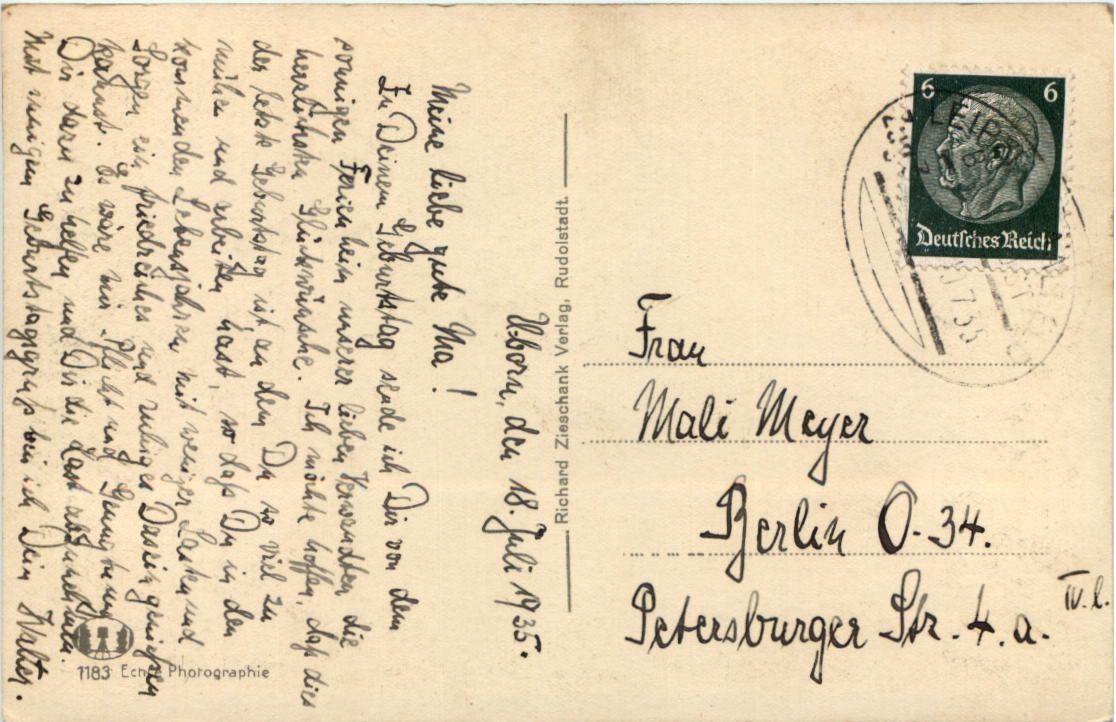 Uborn, den 18. Juli 1935.
Meine liebe gute Ma!
Zu Deinem Geburtstag sende ich Dir von dem
sonnigen Ferienheim unserer lieben Verwandten die
herzlichsten Glückwünsche. Ich möchte hoffen, daß dies
der letzte Geburtstag ist an dem Du so viel zu
mühen und arbeiten hast, so daß Du in den
kommenden Lebensjahren mit weniger Lasten und
Sorgen ein friedliches und ruhiges Dasein genießen
kannst. Es wäre mir Pflicht und Genugtuung
Dir darin zu helfen und Dir die Last abzunehmen.
Mit innigem Geburtstagsgruß bin ich Dein Walter.
1183 Echte Photographie
Richard Zieschank Verlag, Rudolstadt.
6 6
Deutsches Reich
LEIPZ
7 35
Frau
Mali Meyer
Berlin O-34.
Petersburger Str. 4.a. IV. l.